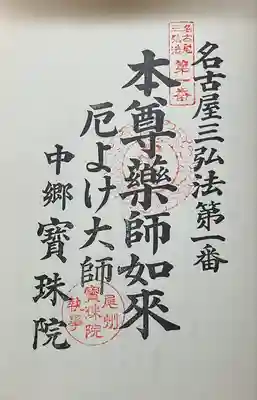 名古屋三弘法第一番
名古屋
三弘法
第一番
本尊藥師如來
厄よけ大師
中郷 寳珠院
尾州
寳珠院
執事